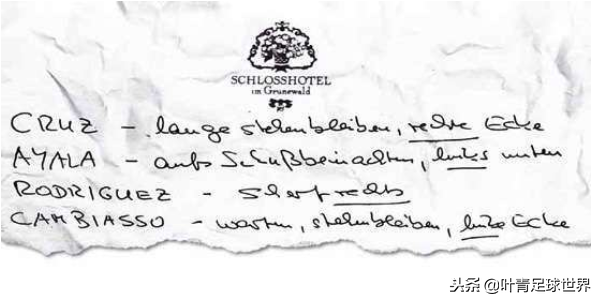 SCHLOSSHOTEL
im Grunewald
CRUZ – lange stehenbleiben, rechte Ecke
AYALA – aufs Schußbein achten, links unten
RODRIGUEZ – scharf rechts
CAMBIASSO – warten, stehenbleiben, linke Ecke
头条 @叶青足球世界